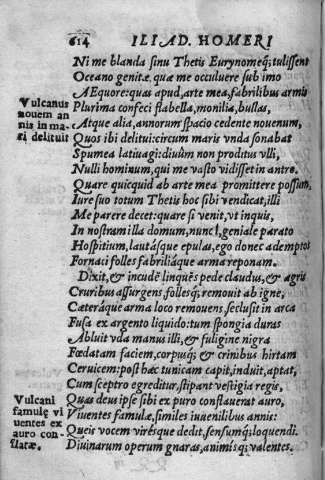 614 ILIAD. HOMERI
Ni me blanda sinu Thetis Eurynomeq́; tulissent
Oceano genitæ. quæ me occuluere sub imo
AEquore: quas apud, arte mea, fabrilibus armis
Vulcanus
nouem an
nis in ma-
ri delituit
Plurima confeci flabella, monilia, bullas,
Atque alia, annorum spacio cedente nouenum,
Quos ibi delitui: circum maris vnda sonabat
Spumea latiuagi: diuûm non proditus vlli,
Nulli hominum, qui me vasto vidisset in antro.
Quare quicquid ab arte mea promittere possum,
Iure suo totum Thetis hoc sibi vendicat, illi
Me parere decet: quare si venit, vt inquis,
In nostram illa domum, nunc, geniale parato
Hospitium, lautásque epulas, ego donec ademptos
Fornaci folles fabriliáque arma reponam.
Dixit, & incudē linquēs pede claudus, & ægris
Cruribus assurgens, follesq́; remouit ab igne,
Cæteráque arma loco remouens seclusit in arca
Fusa ex argento liquido: tum spongia duras
Abluit vda manus illi, & fuligine nigra
Fœdatam faciem, corpusq́; & crinibus hirtam
Ceruicem: post hæc tunicam capit, induit, aptat,
Cum sceptro egreditur, stipant vestigia regis,
Vulcani
famulę vi
uentes ex
auro con-
flatæ.
Quas deus ipse sibi ex puro conflauerat auro,
Viuentes famulæ, similes iuuenilibus annis:
Queis vocem virésque dedit, sensumq́; loquendi.
Diuinarum operum gnaras, animisq́; valentes.